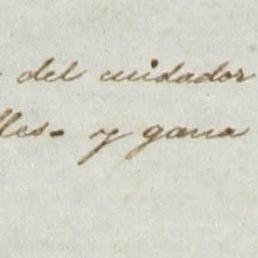 del cuidador
lles- y gana